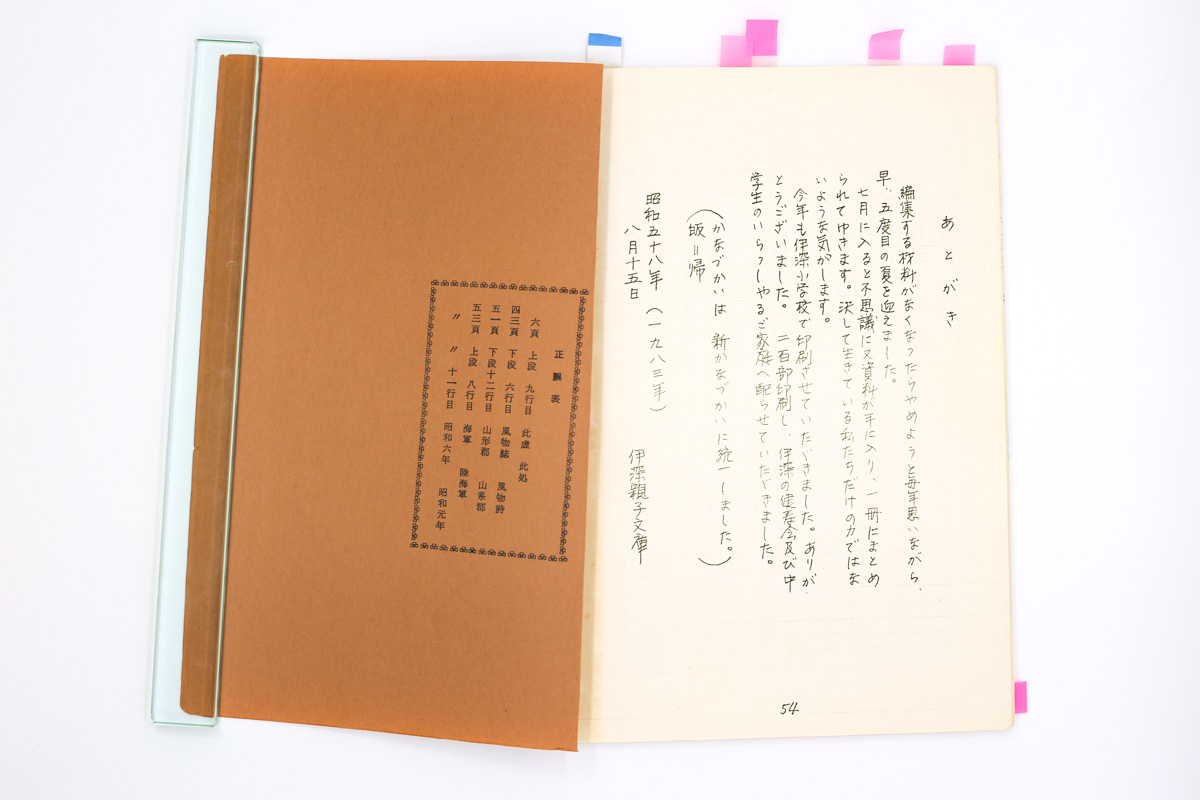 あとがき
編集する材料がなくなったらやめようと毎年思いながら、
早、五度目の夏を迎えました。
七月に入ると不思議に又資料が手に入り、一冊にまとめ
られてゆきます。決して生きている私たちだけの力ではな
いような気がします。
今年も伊深小学校で印刷させていただきました。ありが
とうございました。二百部印刷し、伊深の優寿会及び中
学生のいらっしゃるご家庭へ配らせていただきました。
(かなづかいは 新かなづかいに統一しました。
皈=帰)
昭和五十八年(一九八三年)
八月十五日
伊深親子文庫
54
正誤表
六頁 上段 九行目 此虚 此処
四三頁 下段 六行目 風物誌 風物詩
五一頁 下段十二行目 山形郡 山県郡
五三頁 上段 八行目 海軍 陸海軍
〃 〃 十一行目 昭和六年 昭和元年